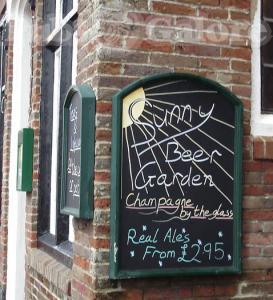 Sunny
Beer
Garden
Champagne
by the glass
Real Ales
From £2.95